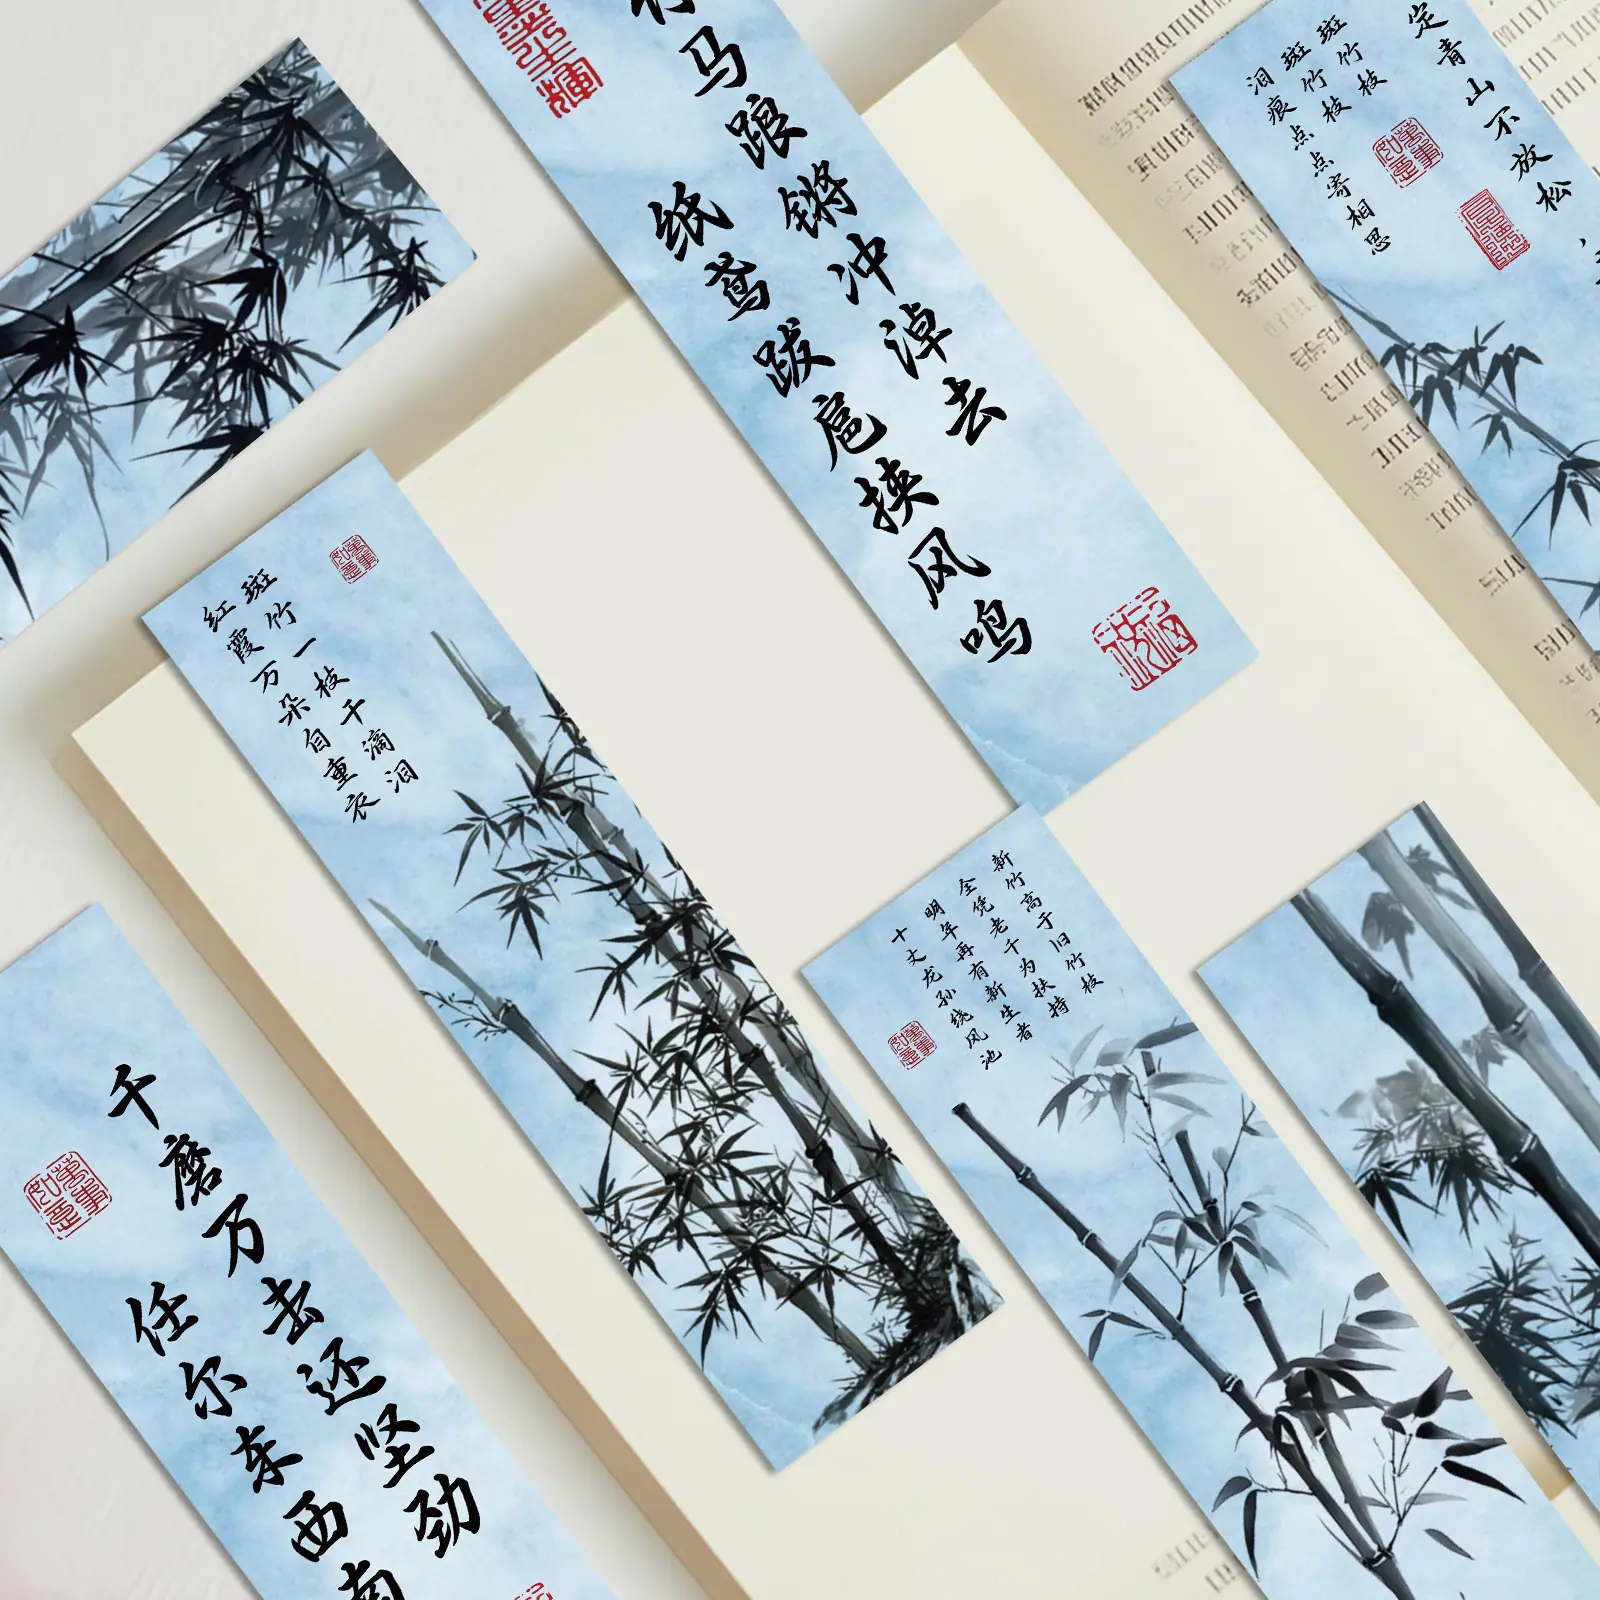 马踉锵冲淖去
纸鸢跋扈挟风鸣
定青山不放松
斑竹枝
斑竹枝
泪痕点点寄相思
萬事如意
斑竹一枝千滴泪
红霞万朵自重衣
萬事如意
新竹高于旧竹枝
全凭老干为扶持
明年再有新生者
十丈龙孙绕凤池
萬事如意
千磨万击还坚劲
任尔东西南
萬事如意